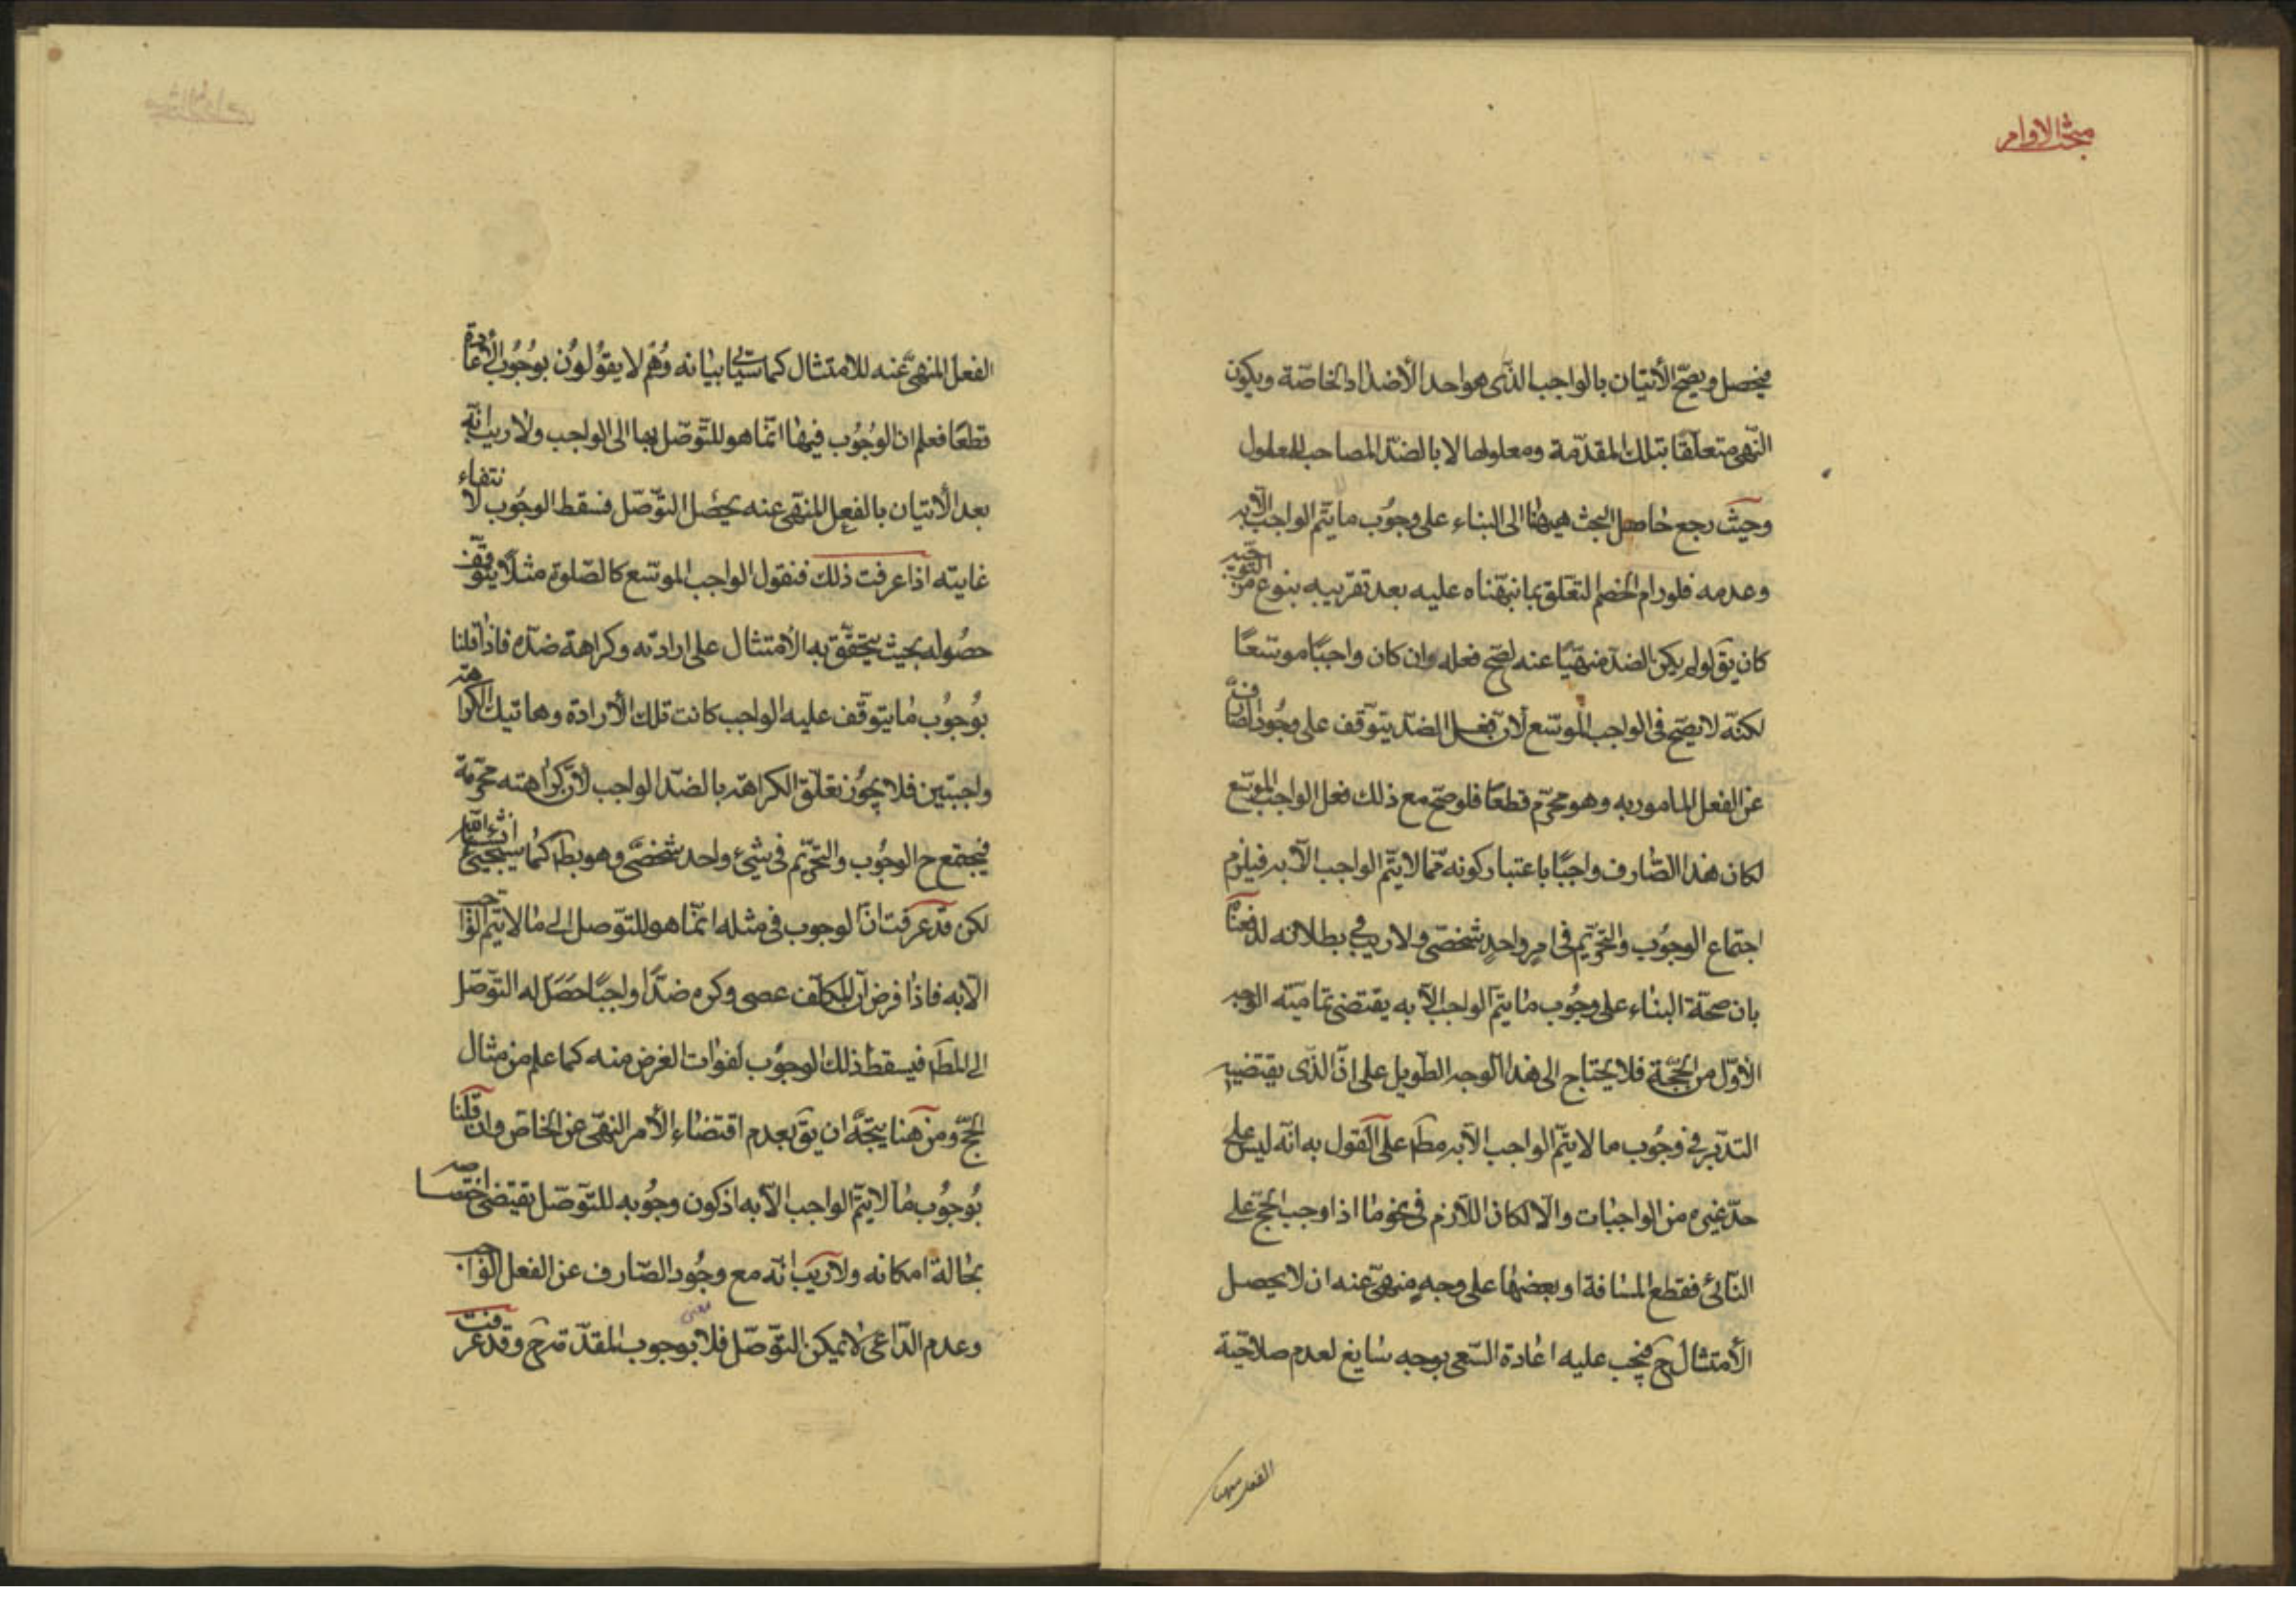 مبحث الاوامر
فيحصل ويصحّ الأتيان بالواجب الذّى هو احد الأضداد الخاصّة ويكون
النّهى متعلّقًا بتلك المقدّمة ومعلولها لا بالضدّ المصاحب للمعلول
وحيث رجع حاصل البحث هيهنا الى البناء على وجُوب ما يتمّ الواجب الّا به
وعدمه فلو رام الخصم التعلّق بما نبّهناه عليه بعد تقريبه بنوع من التّوجيه
كان يقَ لو لم يكن الضدّ منهيًّا عنه لصحّ فعله وان كان واجبًا موسّعًا
لكنّه لا يصحّ فى الواجب الموسّع لانّ فعل الضدّ يتوقّف على وجُود الصّارف
عن الفعل المامور به وهو محرّم قطعًا فلو صحّ مع ذلك فعل الواجب الموسّع
لكان هذا الصّارف واجبًا باعتبار كونه ممّا لا يتمّ الواجب الّا به فيلزم
اجتماع الوجُوب والتّحريم فى امرٍ واحدٍ شخصّى ولا ريب فى بطلانه لدفعناه
بان صحّة البناء على وجُوب ما يتمّ الواجب الّا به يقتضى تماميّة الوجه
الأوّل من الحجّة فلا يحتاج الى هذا الوجه الطّويل على انّ الذّى يقتضيه
التدبّر فى وجُوب ما لا يتمّ الواجب الّا به مطَ على القول به انّه ليس على
حدّ غيره من الواجبات والّا لكان اللّازم فى نحو ما اذا وجب الحجّ على
النّائى فقطع المسافة او بعضها على وجهٍ منهىّ عنه ان لا يحصل
الأمتثال حَ فيجب عليه اعادة السّعى بوجه سايغ لعدم صلاحيّة
الفعل المنهىّ عنه للامتثال كما سيأتى بيانه وهُم لا يقوُلوُن بوجُوب الأعادة
قطعًا فعلم ان الوُجُوب فيها انّما هو للتّوصّل بها الى الواجب ولا ريب انّه
بعد الأتيان بالفعل المنهّى عنه يحصُل التوّصّل فسقط الوجُوب لانتفاء
غايته اذا عرفت ذلك فنقول الواجب الموسّع كالصّلوة مثلًا يتوقّف
حصُوله بحيث يتحقّق به الأمتثال على ارادته وكراهة ضدّه فاذا قلنا
بوُجوُب ما يتوقّف عليه الواجب كانت تلك الأرادة وهاتيك الكراهة
واجبتين فلا يجُوز تعلّق الكراهة بالضدّ الواجب لانّ كراهته محرّمة
فيجتمع ح الوجُوب والتّحريّم فى شيئ واحد شخصّى وهو بطَ كما سيجيئ انشاء الله
لكن قد عرفت انّ الوجوب فى مثله انّما هو للتّوصل الى ما لا يتمّ الواجب
الّا به فاذا فرض ان المكلّف عصى وكره ضدًّا واجبًا حصَل له التوّصّل
الى المطَ فيسقط ذلك الوجوُب لفوات الغرض منه كما علم من مثال
الحجّ ومن هنا يتجّه ان يقَ بعدم اقتضاء الأمر النهّى عن الخاصّ وان قلنا
بوُجوُب ما لا يتمّ الواجب الّا به اذ كون وجُوبه للتّوصّل يقتضى اختصاصه
بحالة امكانه ولا ريب انّه مع وجُود الصّارف عن الفعل الواجب
وعدم الدّاعى لا يمكن التوّصّل فلا معنى بوجوب المقدّمة حَ وقد عرفت